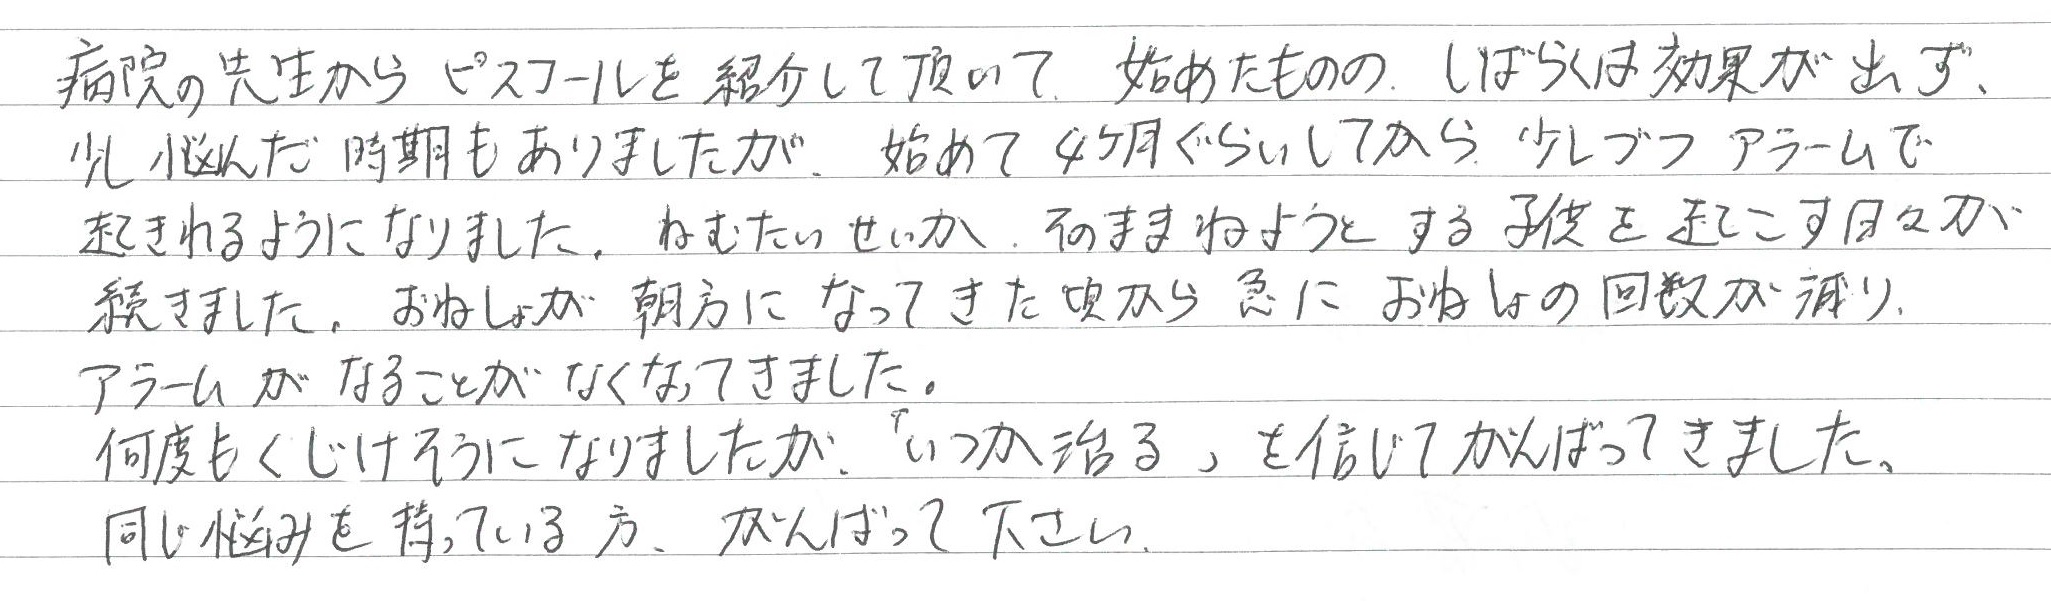 病院の先生から ピスコールを 紹介して頂いて、始めたものの、しばらくは効果が出ず、
少し悩んだ時期もありましたが、始めて4ケ月ぐらいしてから、少しづつ アラームで
起きれるようになりました。ねむたいせいか、そのままねようとする子供を起こす日々が
続きました。おねしょが朝方になってきた頃から急におねしょの回数が減り、
アラームがなることがなくなってきました。
何度もくじけそうになりましたが、「いつか治る」を信じてがんばってきました。
同じ悩みを持っている方、がんばって下さい。